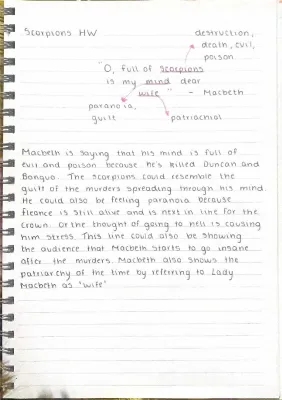 Scorpions HW
destruction,
death, evil,
poison
"O, full of scorpions
is my mind dear
wife" - Macbeth
paranoia,
guilt
patriachial
Macbeth is saying that his mind is full of
evil and poison because he's killed Duncan and
Banquo. The scorpions could resemble the
guilt of the murders spreading through his mind.
He could also be feeling paranoia because
fleance is still alive and is next in line for the
crown. Or the thought of going to hell is causing
him stress. This line could also be showing
the audience that Macbeth starts to go insane
after the murders. Macbeth also shows the
patriarchy of the time by referring to Lady
Macbeth as 'wife'